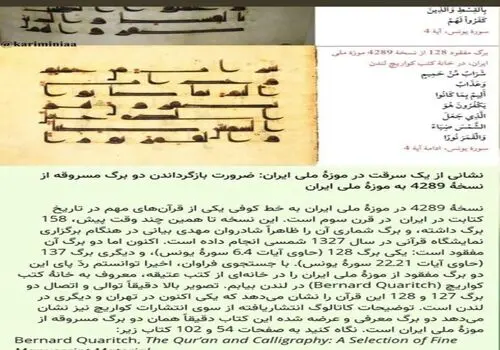 بِالْقِسْطِ وَالَّذِينَ
كَفَرُوا لَهُمْ
سورهٔ یونس، آیهٔ 4
@kariminiaa
برگ مفقود 128 از نسخهٔ 4289 موزهٔ ملی
ایران، در خانهٔ کتب کواریچ لندن
شَرَابٌ مِّنْ حَمِيمٍ
وَعَذَابٌ
أَلِيمٌ بِمَا كَانُوا
يَكْفُرُونَ هُوَ
الَّذِي جَعَلَ
الشَّمْسَ ضِيَاءً
وَالْقَمَرَ نُورًا
سورهٔ یونس، ادامهٔ آیهٔ 4
نشانی از یک سرقت در موزهٔ ملی ایران: ضرورت بازگرداندن دو برگ مسروقه از
نسخهٔ 4289 به موزهٔ ملی ایران
نسخهٔ 4289 در موزهٔ ملی ایران به خط کوفی یکی از قرآن‌های مهم در تاریخ
کتابت در ایران در قرن سوم است. این نسخه تا همین چند وقت پیش، 158
برگ داشته، و برگ شماری آن را ظاهراً شادروان مهدی بیانی در هنگام برگزاری
نمایشگاه قرآنی در سال 1327 شمسی انجام داده است. اکنون اما دو برگ آن
مفقود است: یکی برگ 128 (حاوی آیات 4ـ6 سورهٔ یونس)، و دیگری برگ 137
(حاوی آیات 21ـ22 سورهٔ یونس). با جستجوی فراوان، اخیرا توانستم ردّ پای این
دو برگ مفقود از موزهٔ ملی ایران را در خانه‌ای از کتب عتیقه، معروف به خانهٔ کتب
کواریچ (Bernard Quaritch) در لندن بیابم. تصویر بالا دقیقاً توالی و اتصال دو
برگ 127 و 128 این قرآن را نشان می‌دهد که یکی اکنون در تهران و دیگری در
لندن است. توضیحات کاتالوگ انتشاریافته از سوی انتشارات کواریچ نیز نشان
می‌دهد دو برگ معرفی و عرضه شده این کتاب دقیقاً همان دو برگ مسروقه از
موزهٔ ملی ایران است. نگاه کنید به صفحات 54 و 102 کتاب زیر:
Bernard Quaritch, The Qur’an and Calligraphy: A Selection of Fine